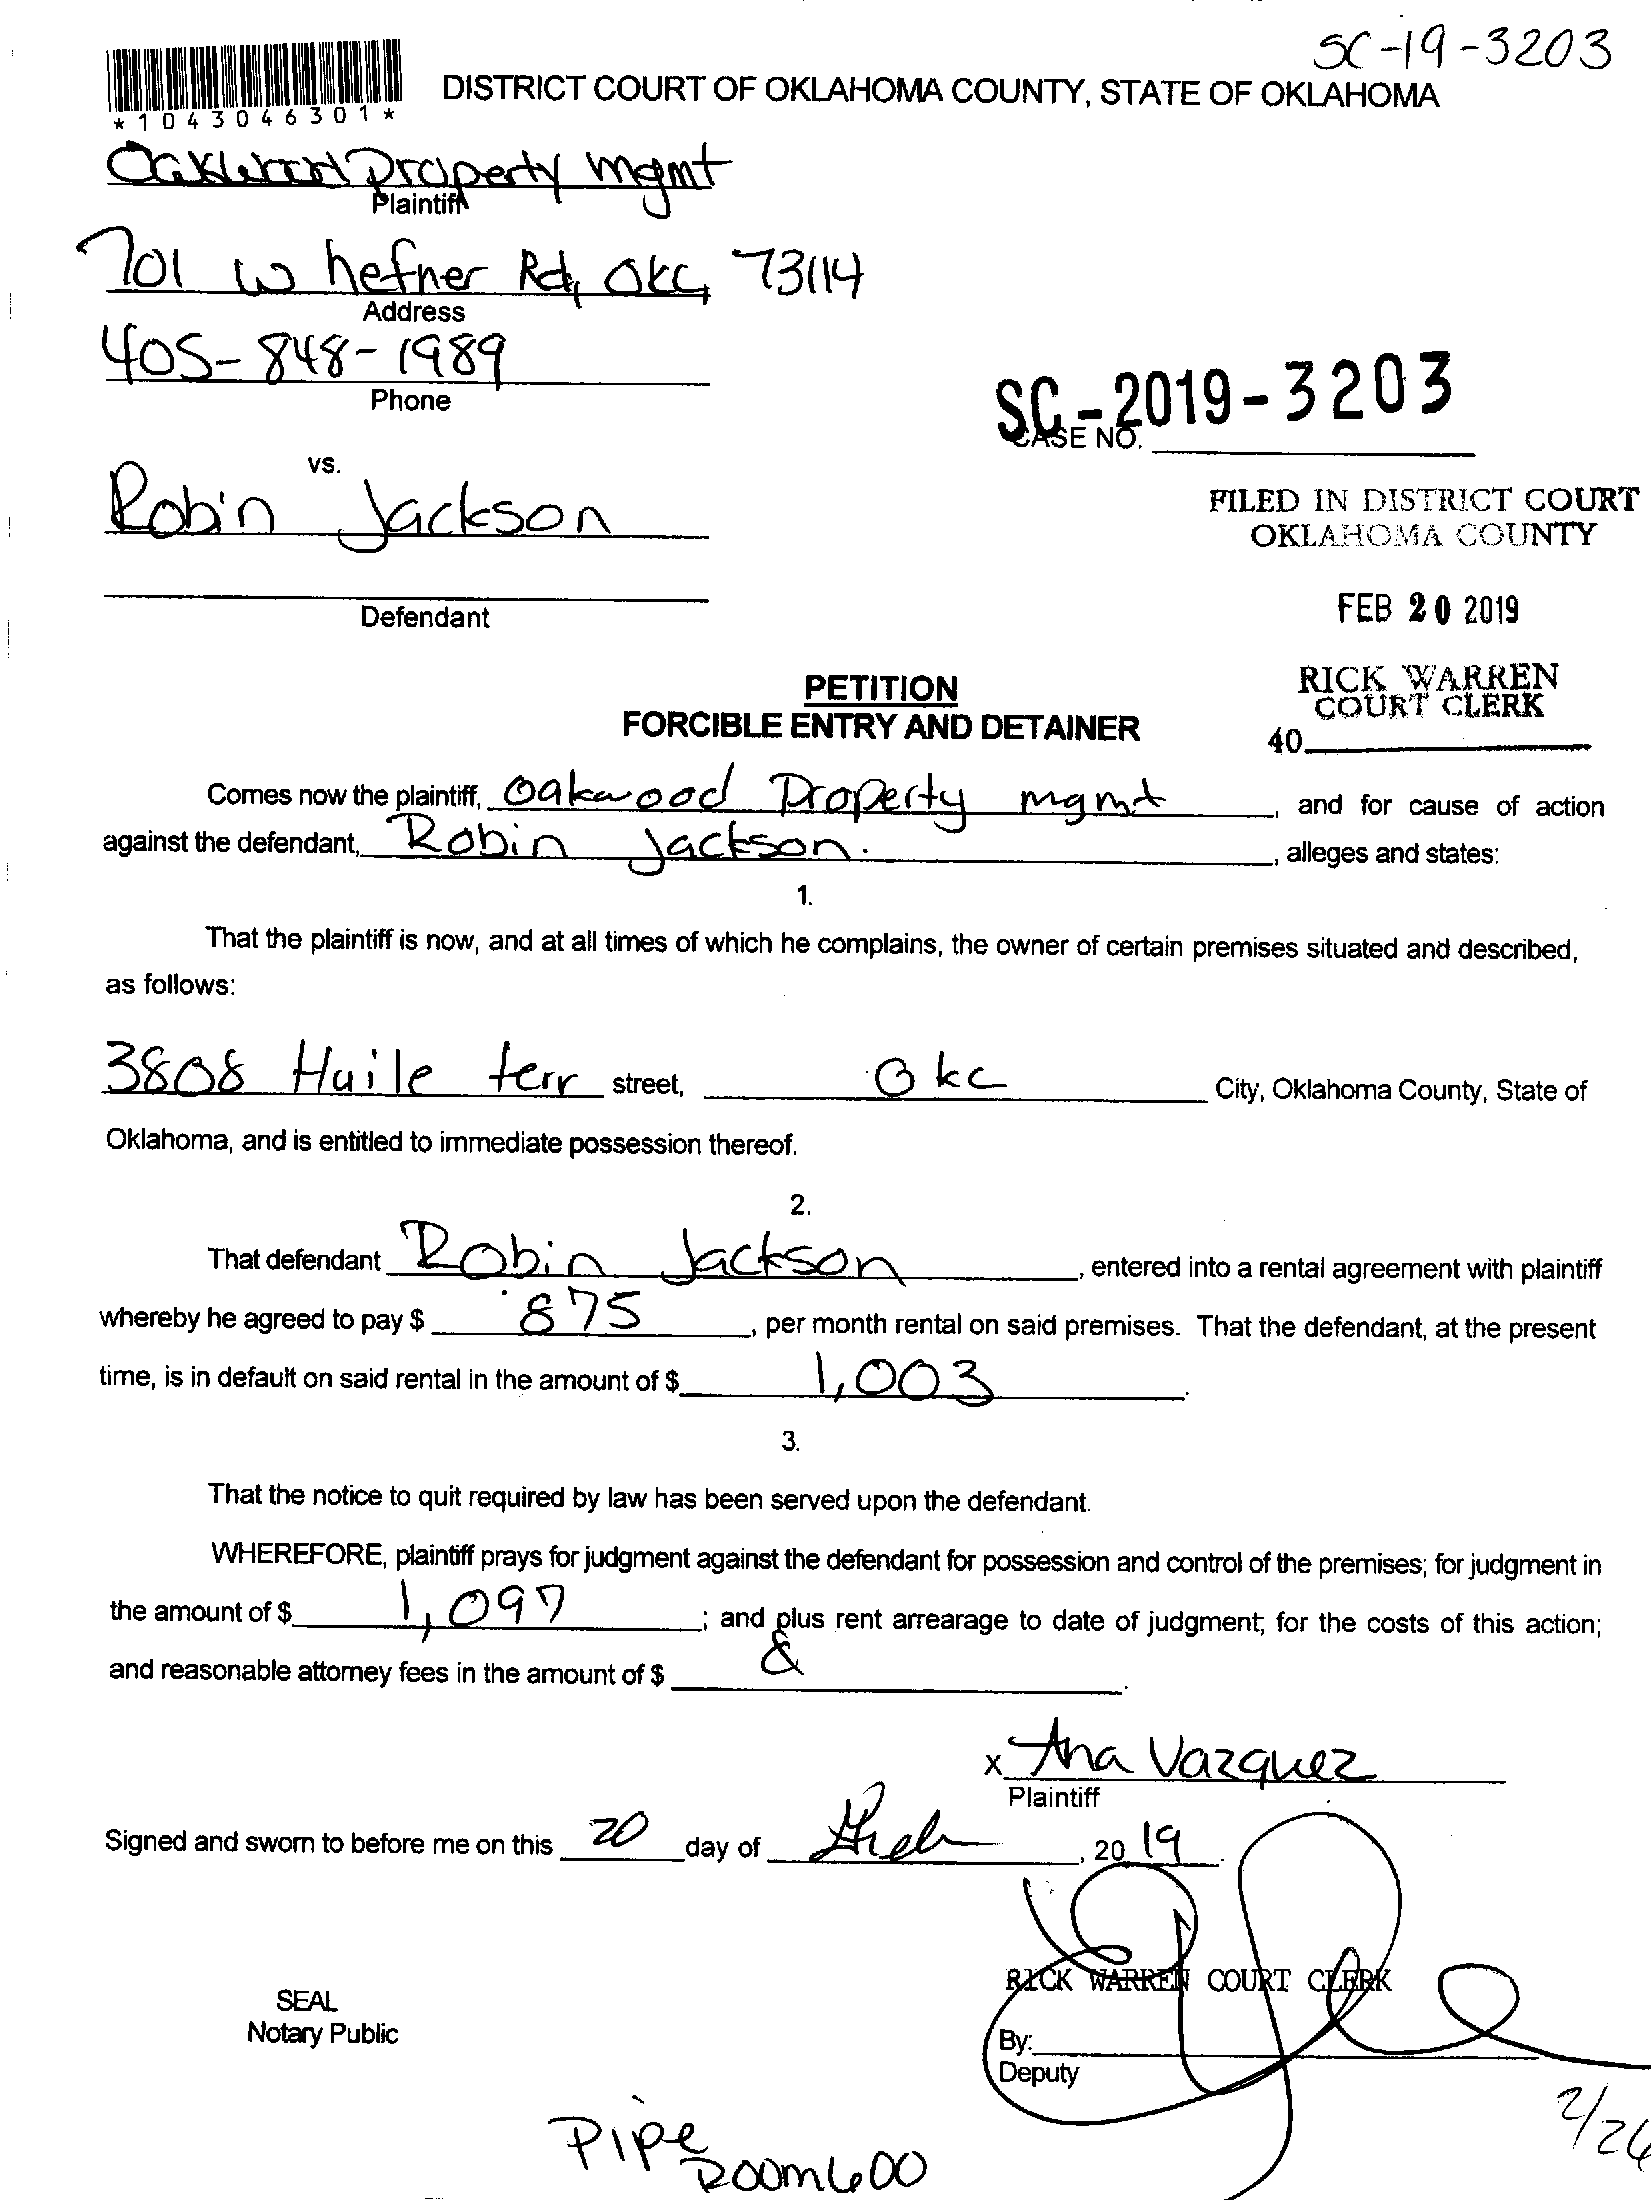 SC-19-3203
*1043046301*
DISTRICT COURT OF OKLAHOMA COUNTY, STATE OF OKLAHOMA
Oakwood Property mgmt
Plaintiff
701 W hefner Rd, OKC, 73114
Address
405-848-1989
Phone
SC-2019-3203
CASE NO.
vs.
Robin Jackson
FILED IN DISTRICT COURT
OKLAHOMA COUNTY
Defendant
FEB 20 2019
PETITION
FORCIBLE ENTRY AND DETAINER
RICK WARREN
COURT CLERK
40
Comes now the plaintiff, Oakwood Property mgmt, and for cause of action
against the defendant, Robin Jackson., alleges and states:
1.
That the plaintiff is now, and at all times of which he complains, the owner of certain premises situated and described,
as follows:
3808 Huile terr street, Okc City, Oklahoma County, State of
Oklahoma, and is entitled to immediate possession thereof.
2.
That defendant Robin Jackson, entered into a rental agreement with plaintiff
whereby he agreed to pay $ 875, per month rental on said premises. That the defendant, at the present
time, is in default on said rental in the amount of $ 1,003.
3.
That the notice to quit required by law has been served upon the defendant.
WHEREFORE, plaintiff prays for judgment against the defendant for possession and control of the premises; for judgment in
the amount of $ 1,097; and plus rent arrearage to date of judgment; for the costs of this action;
and reasonable attorney fees in the amount of $ &.
x Ana Vazquez
Plaintiff
Signed and sworn to before me on this 20 day of Feb, 2019
RICK WARREN COURT CLERK
SEAL
Notary Public
By:
Deputy
2/26
Pipe
Room 600